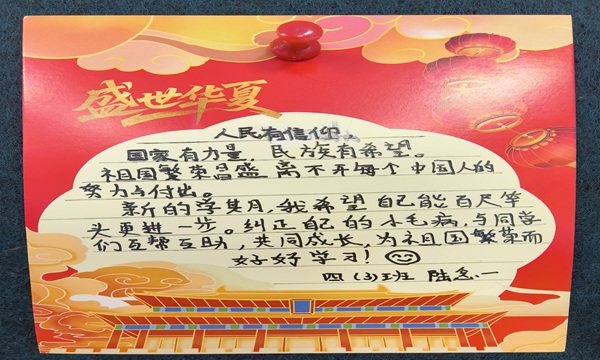 盛世华夏
人民有信仰，
国家有力量，民族有希望。
祖国繁荣昌盛离不开每个中国人的
努力与付出。
新的学期，我希望自己能百尺竿
头更进一步。纠正自己的小毛病，与同学
们互帮互助，共同成长，为祖国繁荣而
好好学习！
四（3）班 陆念一